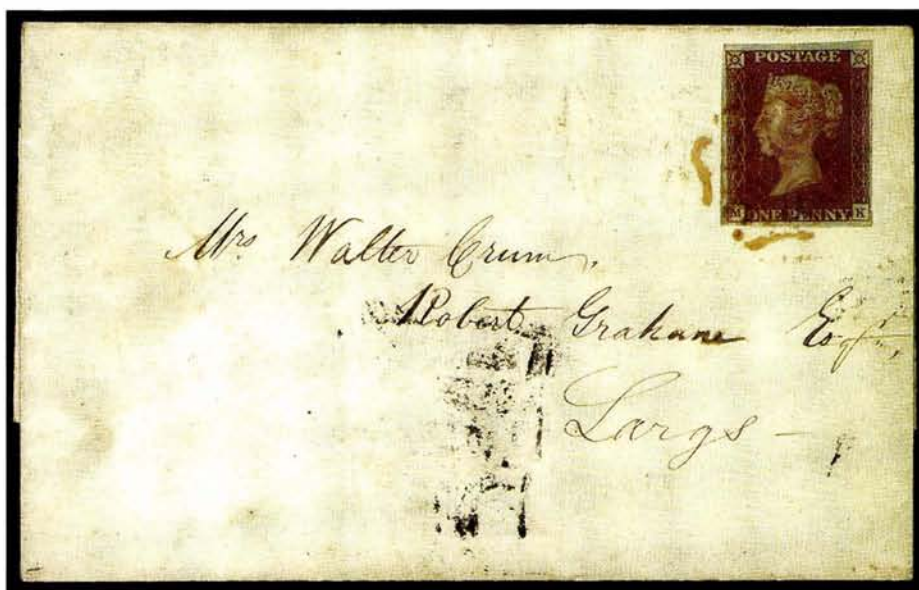 POSTAGE
M ONE PENNY K
Mrs. Walter Crum,
Robert Grahame Esqr,
Largs –